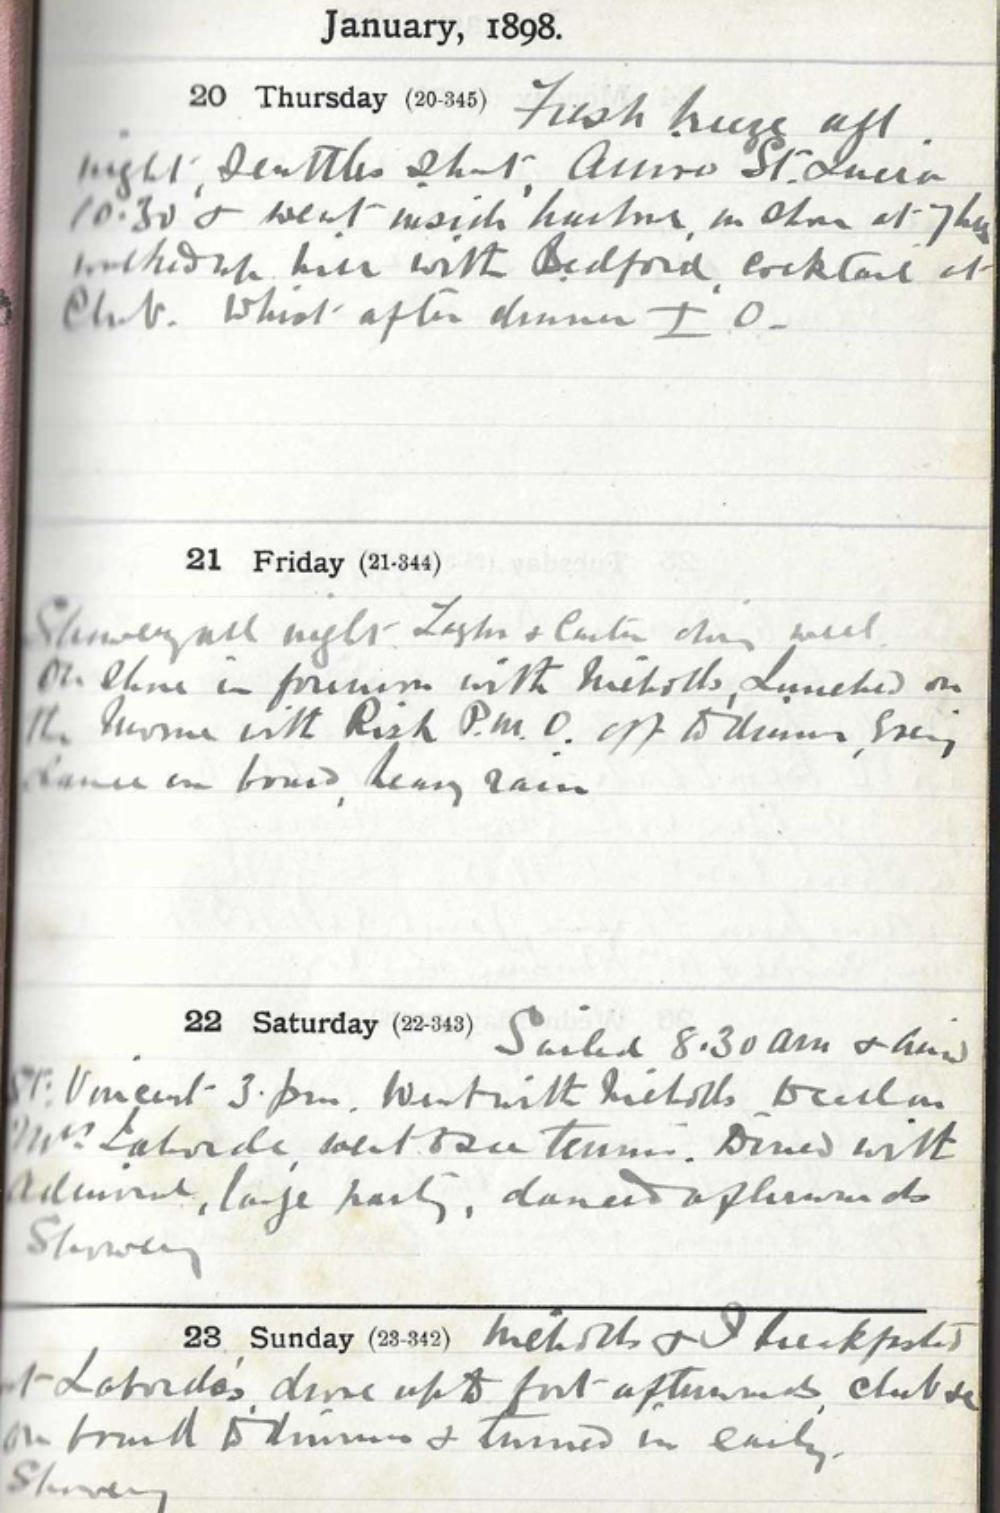 January, 1898.
20 Thursday (20-345) Fresh breeze all
night, Scuttles shut, Arrive St. Lucia
10.30 & went inside harbour, on shore at
walked up hill with Bedford, cocktail at
Club. Whist after dinner I O -
21 Friday (21-344)
Showery all night & doing well.
On shore in forenoon with Nicholls, Lunched on
the Morne with Risk P.M.O. off to dinner,
dance on board, heavy rain
22 Saturday (22-343) Sailed 8.30 am &
St. Vincent 3. pm. Went with Nicholls to call on
Mrs Laborde, went to see tennis. Dined with
Admiral, large party, danced afterwards
Showery
23 Sunday (23-342) Nicholls & I breakfasted
at Laborde's, drove up to fort afterwards, club &
on board to dinner & turned in early.
Showery